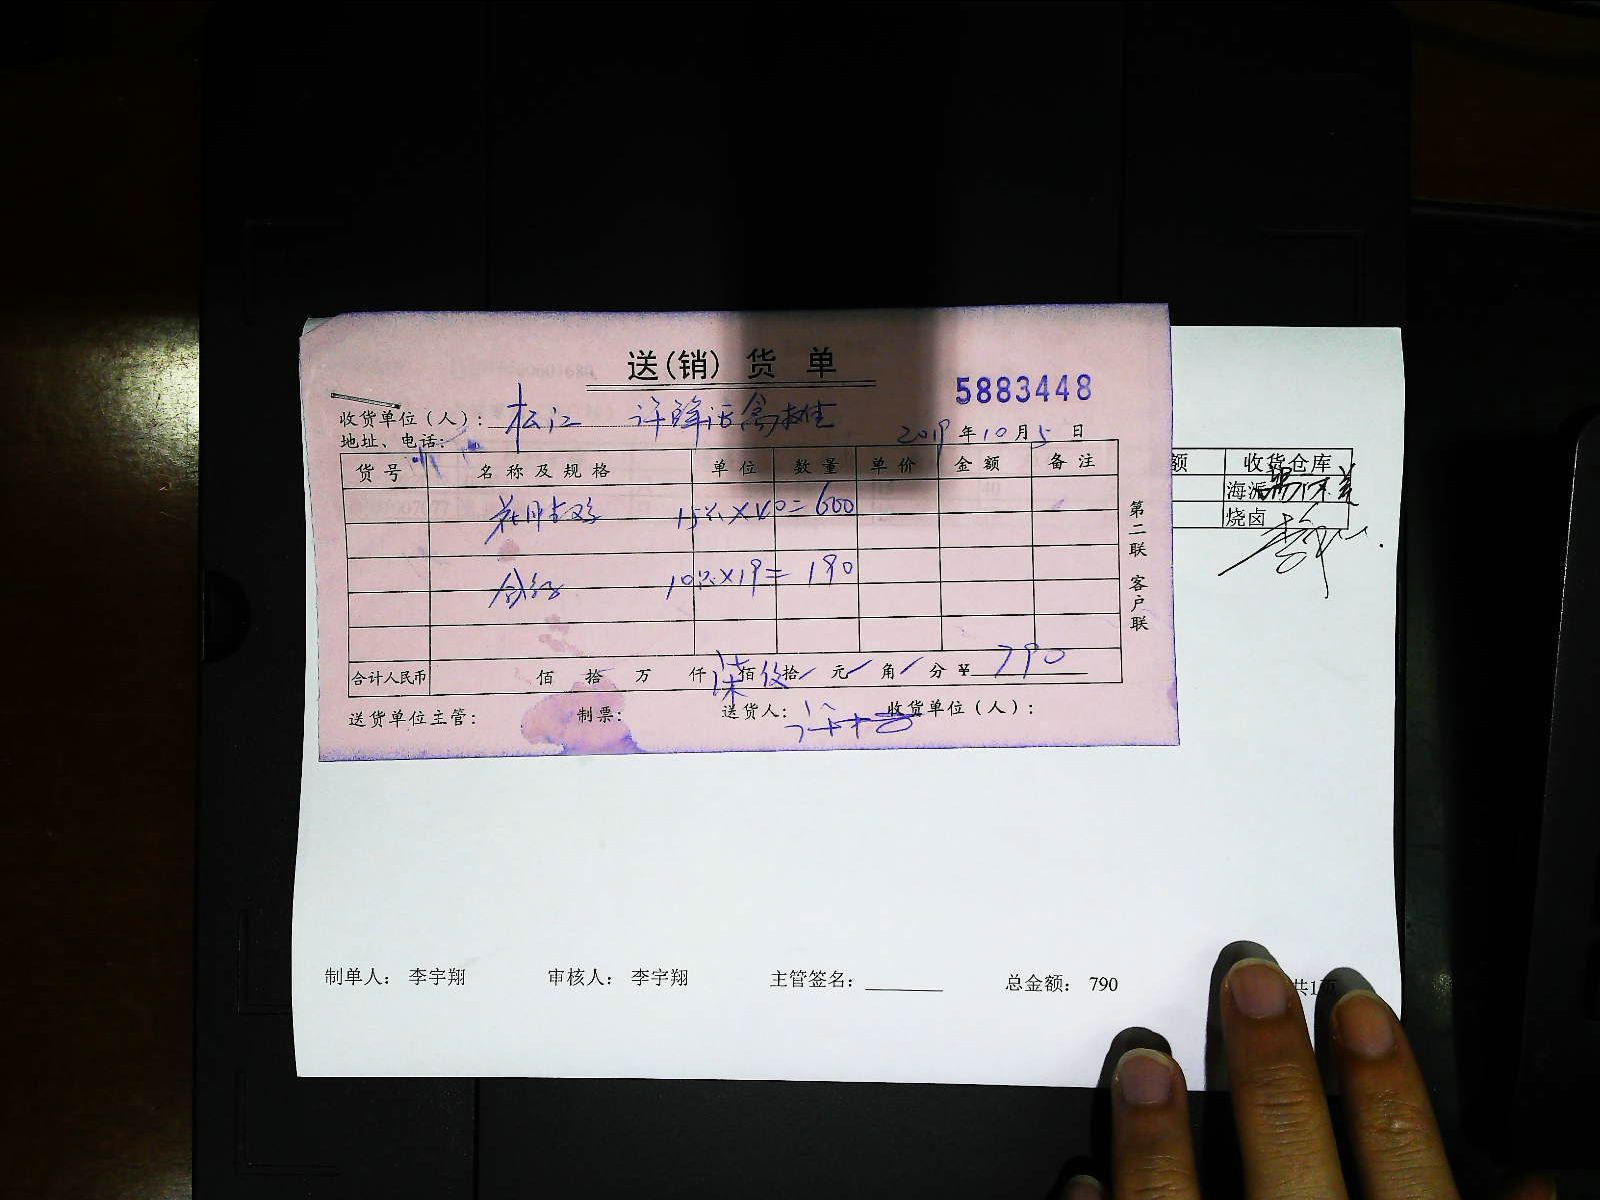 送(销) 货 单
5883448
收货单位（人）： 松江
地址、电话：
2019 年 10 月 5 日
货号 名称及规格 单位 数量 单价 金额 备注
15只×40=600
10只×19=190
合计人民币 佰 拾 万 仟 柒 佰 玖 拾 / 元 / 角 / 分 ¥ 790
送货单位主管： 制票： 送货人： 收货单位（人）：
第二联 客户联
额 收货仓库
海派
烧卤
制单人： 李宇翔 审核人： 李宇翔 主管签名： 总金额： 790
共1页